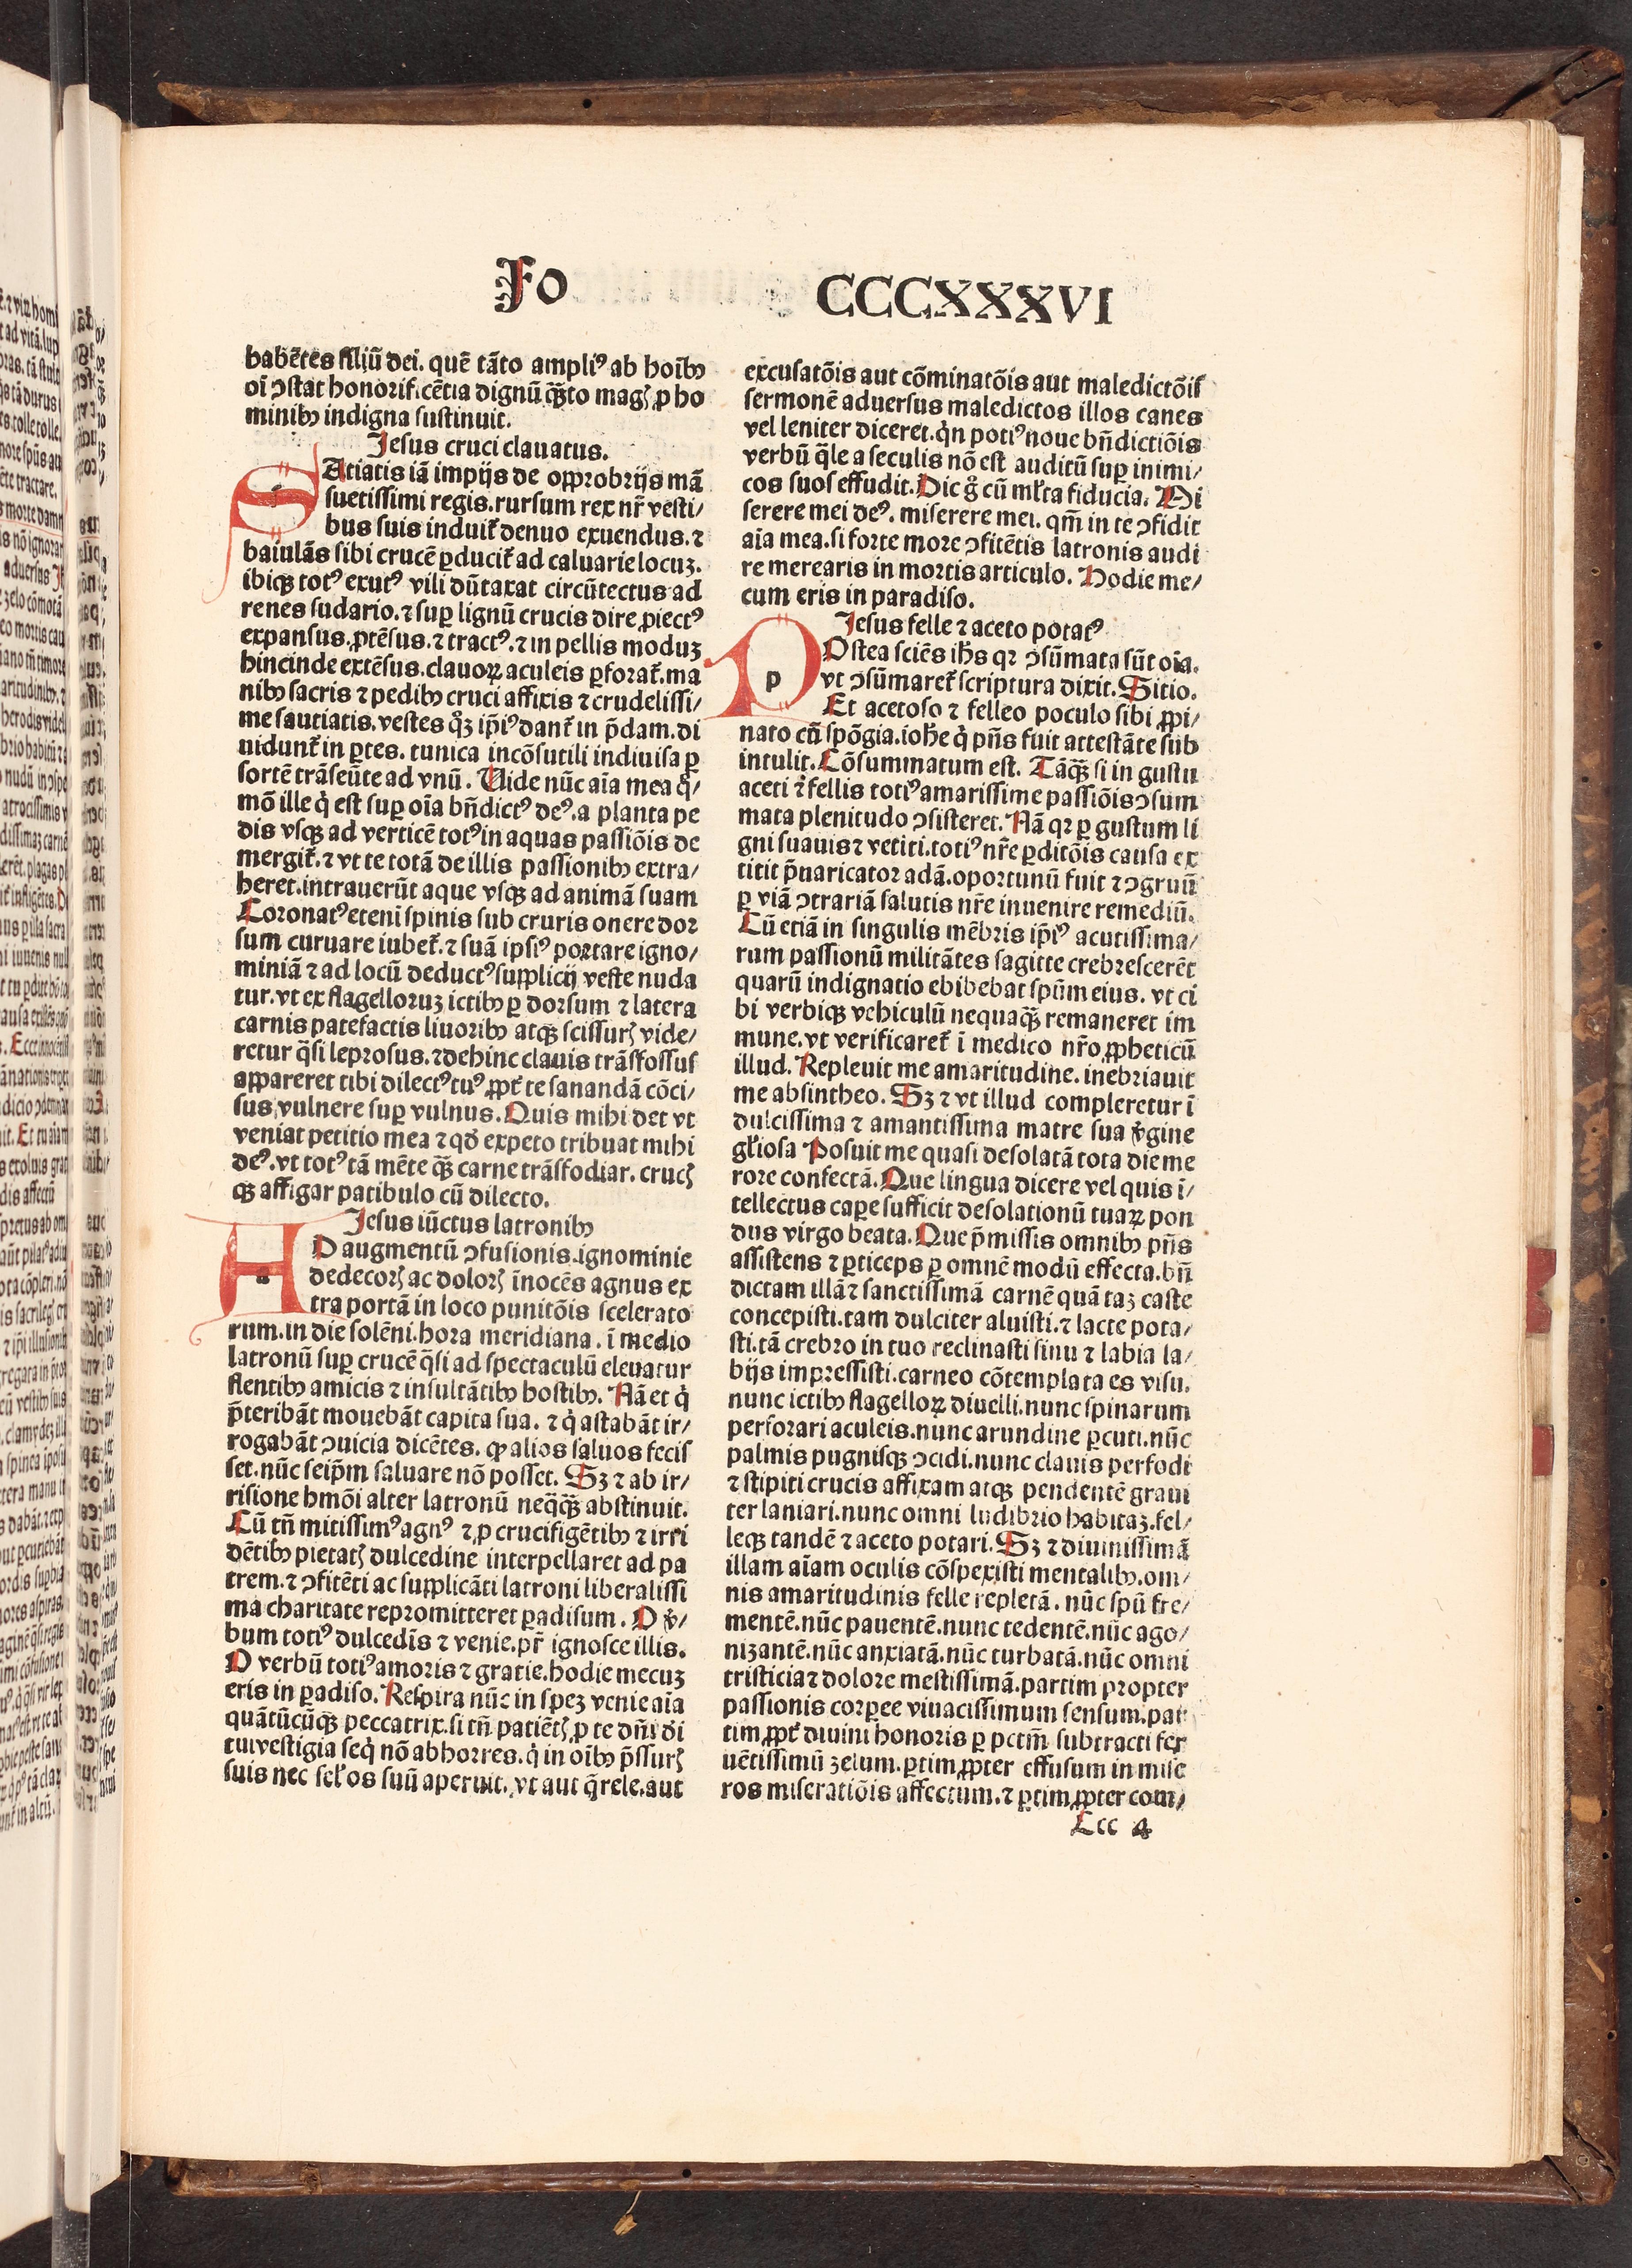 Fo CCCXXXVI
habētes filiū dei. quē tāto ampliꝰ ab hoībꝫ
oī ↄstat honorificētia dignū q̄to magꝭ ꝓ ho
minibꝫ indigna sustinuit.
Jesus cruci clauatus.
SAtiatis iā impijs de opprobrijs mā
suetissimi regis. rursum rex nr̄ vesti/
bus suis induit̄ denuo exuendus. ⁊
baiulās sibi crucē ꝑducit̄ ad caluarie locuꝫ.
ibiqꝫ totꝰ exutꝰ vili dūtaxat circūtectus ad
renes sudario. ⁊ suꝑ lignū crucis dire ꝓiectꝰ
expansus. ꝓtēsus. ⁊ tractꝰ. ⁊ in pellis moduꝫ
hincinde extēsus. clauoꝝ aculeis ꝑforat̄. ma
nibꝫ sacris ⁊ pedibꝫ cruci affixis ⁊ crudelissi/
me sautiatis. vestes qͦꝫ ip̄iꝰ dant̄ in p̄dam. di
uidunt̄ in ꝑtes. tunica incōsutili indiuisa ꝑ
sortē trāseūte ad vnū. Uide nūc aīa mea qͦ/
mō ille q̇ est suꝑ oīa bn̄dictꝰ deꝰ. a planta pe
dis vsqꝫ ad verticē totꝰ in aquas passiōis de
mergit̄. ⁊ vt te totā de illis passionibꝫ extra/
heret. intrauerūt aque vsqꝫ ad animā suam
Coronatꝰ etenī spinis sub cruris onere dor
sum curuare iubet̄. ⁊ suā ipsiꝰ portare igno/
miniā ⁊ ad locū deductꝰ supplicij veste nuda
tur. vt ex flagelloruꝫ ictibꝫ ꝑ dorsum ⁊ latera
carnis patefactis liuoribꝫ atqꝫ scissurꝭ vide/
retur q̄si leprosus. ⁊ dehinc clauis trāsfossus
appareret tibi dilectꝰ tuꝰ ꝓpt̄ te sanandā cōci/
sus, vulnere suꝑ vulnus. Quis mihi det vt
veniat petitio mea ⁊ qd̄ expeto tribuat mihi
deꝰ. vt totꝰ tā mēte qꝫ̄ carne trāsfodiar. crucꝭ
qꝫ affigar patibulo cū dilecto.
Jesus iūctus latronibꝫ
AD augmentū ↄfusionis. ignominie
dedecorꝭ ac dolorꝭ īnocēs agnus ex
tra portā in loco punitōis scelerato
rum. in die solēni. hora meridiana. ī medio
latronū suꝑ crucē q̄si ad spectaculū eleuatur
flentibꝫ amicis ⁊ insultātibꝫ hostibꝫ. Nā et q̇
p̄teribāt mouebāt capita sua. ⁊ q̇ astabāt ir/
rogabāt ↄuicia dicētes. ꝙ alios saluos fecis
set. nūc seip̄m saluare nō posset. Sꝫ ⁊ ab ir/
risione hmōi alter latronū neq̄qꝫ̄ abstinuit.
Cū tn̄ mitissimꝰ agnꝰ ⁊ ꝓ crucifigētibꝫ ⁊ irri
dētibꝫ pietatꝭ dulcedine interpellaret ad pa
trem. ⁊ ↄfitēti ac supplicāti latroni liberalissi
ma charitate repromitteret ꝑadisum. O v̄/
bum totiꝰ dulcedīs ⁊ venie. pr̄ ignosce illis.
O verbū totiꝰ amoris ⁊ gratie. hodie mecuꝫ
eris in ꝑadiso. Respira nūc in speꝫ venie aīa
quātūcūqꝫ peccatrix. si tn̄ patiētꝭ ꝓ te dn̄i di
tui vestigia seq̇ nō abhorres. q̇ in oībꝫ p̄ssurꝭ
suis nec sel̄ os suū aperuit. vt aut q̄rele. aut
excusatōis aut cōminatōis aut maledictōis
sermonē aduersus maledictos illos canes
vel leniter diceret. q̇n potiꝰ noue bn̄dictiōis
verbū q̄le a seculis nō est auditū suꝑ inimi/
cos suos effudit. Dic gͦ cū ml̄ta fiducia. Mi
serere mei deꝰ. miserere mei. qm̄ in te ↄfidit
aīa mea. si forte more ↄfitētis latronis audi
re merearis in mortis articulo. Hodie me/
cum eris in paradiso.
Jesus felle ⁊ aceto potatꝰ
p
POstea sciēs ih̄s qꝛ ↄsūmata sūt oīa.
vt ↄsūmaret̄ scriptura dixit. Sitio.
Et acetoso ⁊ felleo poculo sibi ꝓpi/
nato cū spōgia. ioh̄e q̇ p̄ns fuit attestāte sub
intulit. Cōsummatum est. Tāqꝫ̄ si in gustu
aceti ⁊ fellis totiꝰ amarissime passiōis ↄsum
mata plenitudo ↄsisteret. Nā qꝛ ꝑ gustum li
gni suauis ⁊ vetiti. totiꝰ nr̄e ꝑditōis causa ex
titit p̄uaricator adā. oportunū fuit ⁊ ↄgruū
ꝑ viā ↄtrariā salutis nr̄e inuenire remediū.
Cū etiā in singulis mēbris ip̄iꝰ acutissima/
rum passionū militātes sagitte crebrescerēt
quarū indignatio ebibebat spūm eius. vt ci
bi verbiqꝫ vehiculū nequaqꝫ̄ remaneret im
mune. vt verificaret̄ ī medico nr̄o ꝓpheticū
illud. Repleuit me amaritudine. inebriauit
me absintheo. Sꝫ ⁊ vt illud compleretur ī
dulcissima ⁊ amantissima matre sua v̄gine
gl̄iosa Posuit me quasi desolatā tota die me
rore confectā. Que lingua dicere vel quis ī/
tellectus caꝑe sufficit desolationū tuaꝝ pon
dus virgo beata. Que p̄missis omnibꝫ p̄ns
assistens ⁊ ꝑticeps ꝑ omnē modū effecta. bn̄
dictam illā ⁊ sanctissimā carnē quā taꝫ caste
concepisti. tam dulciter aluisti. ⁊ lacte pota/
sti. tā crebro in tuo reclinasti sinu ⁊ labia la/
bijs impressisti. carneo cōtemplata es visu.
nunc ictibꝫ flagelloꝝ diuelli. nunc spinarum
perforari aculeis. nunc arundine ꝑcuti. nūc
palmis pugnisqꝫ ↄcidi. nunc clauis perfodi
⁊ stipiti crucis affixam atqꝫ pendentē graui
ter laniari. nunc omni ludibrio habitaꝫ. fel/
leqꝫ tandē ⁊ aceto potari. Sꝫ ⁊ diuinissimā
illam aīam oculis cōspexisti mentalibꝫ. om/
nis amaritudinis felle repletā. nūc spū fre/
mentē. nūc pauentē. nunc tedentē. nūc ago/
nizantē. nūc anxiatā. nūc turbatā. nūc omni
tristicia ⁊ dolore mestissimā. partim propter
passionis corꝑee viuacissimum sensum. par
tim ꝓpt̄ diuini honoris ꝑ pctm̄ subtracti fer
uētissimū zelum. ꝑtim ꝓpter effusum in mise
ros miseratiōis affectum. ⁊ ꝑtim ꝓpter com/
Ccc 4